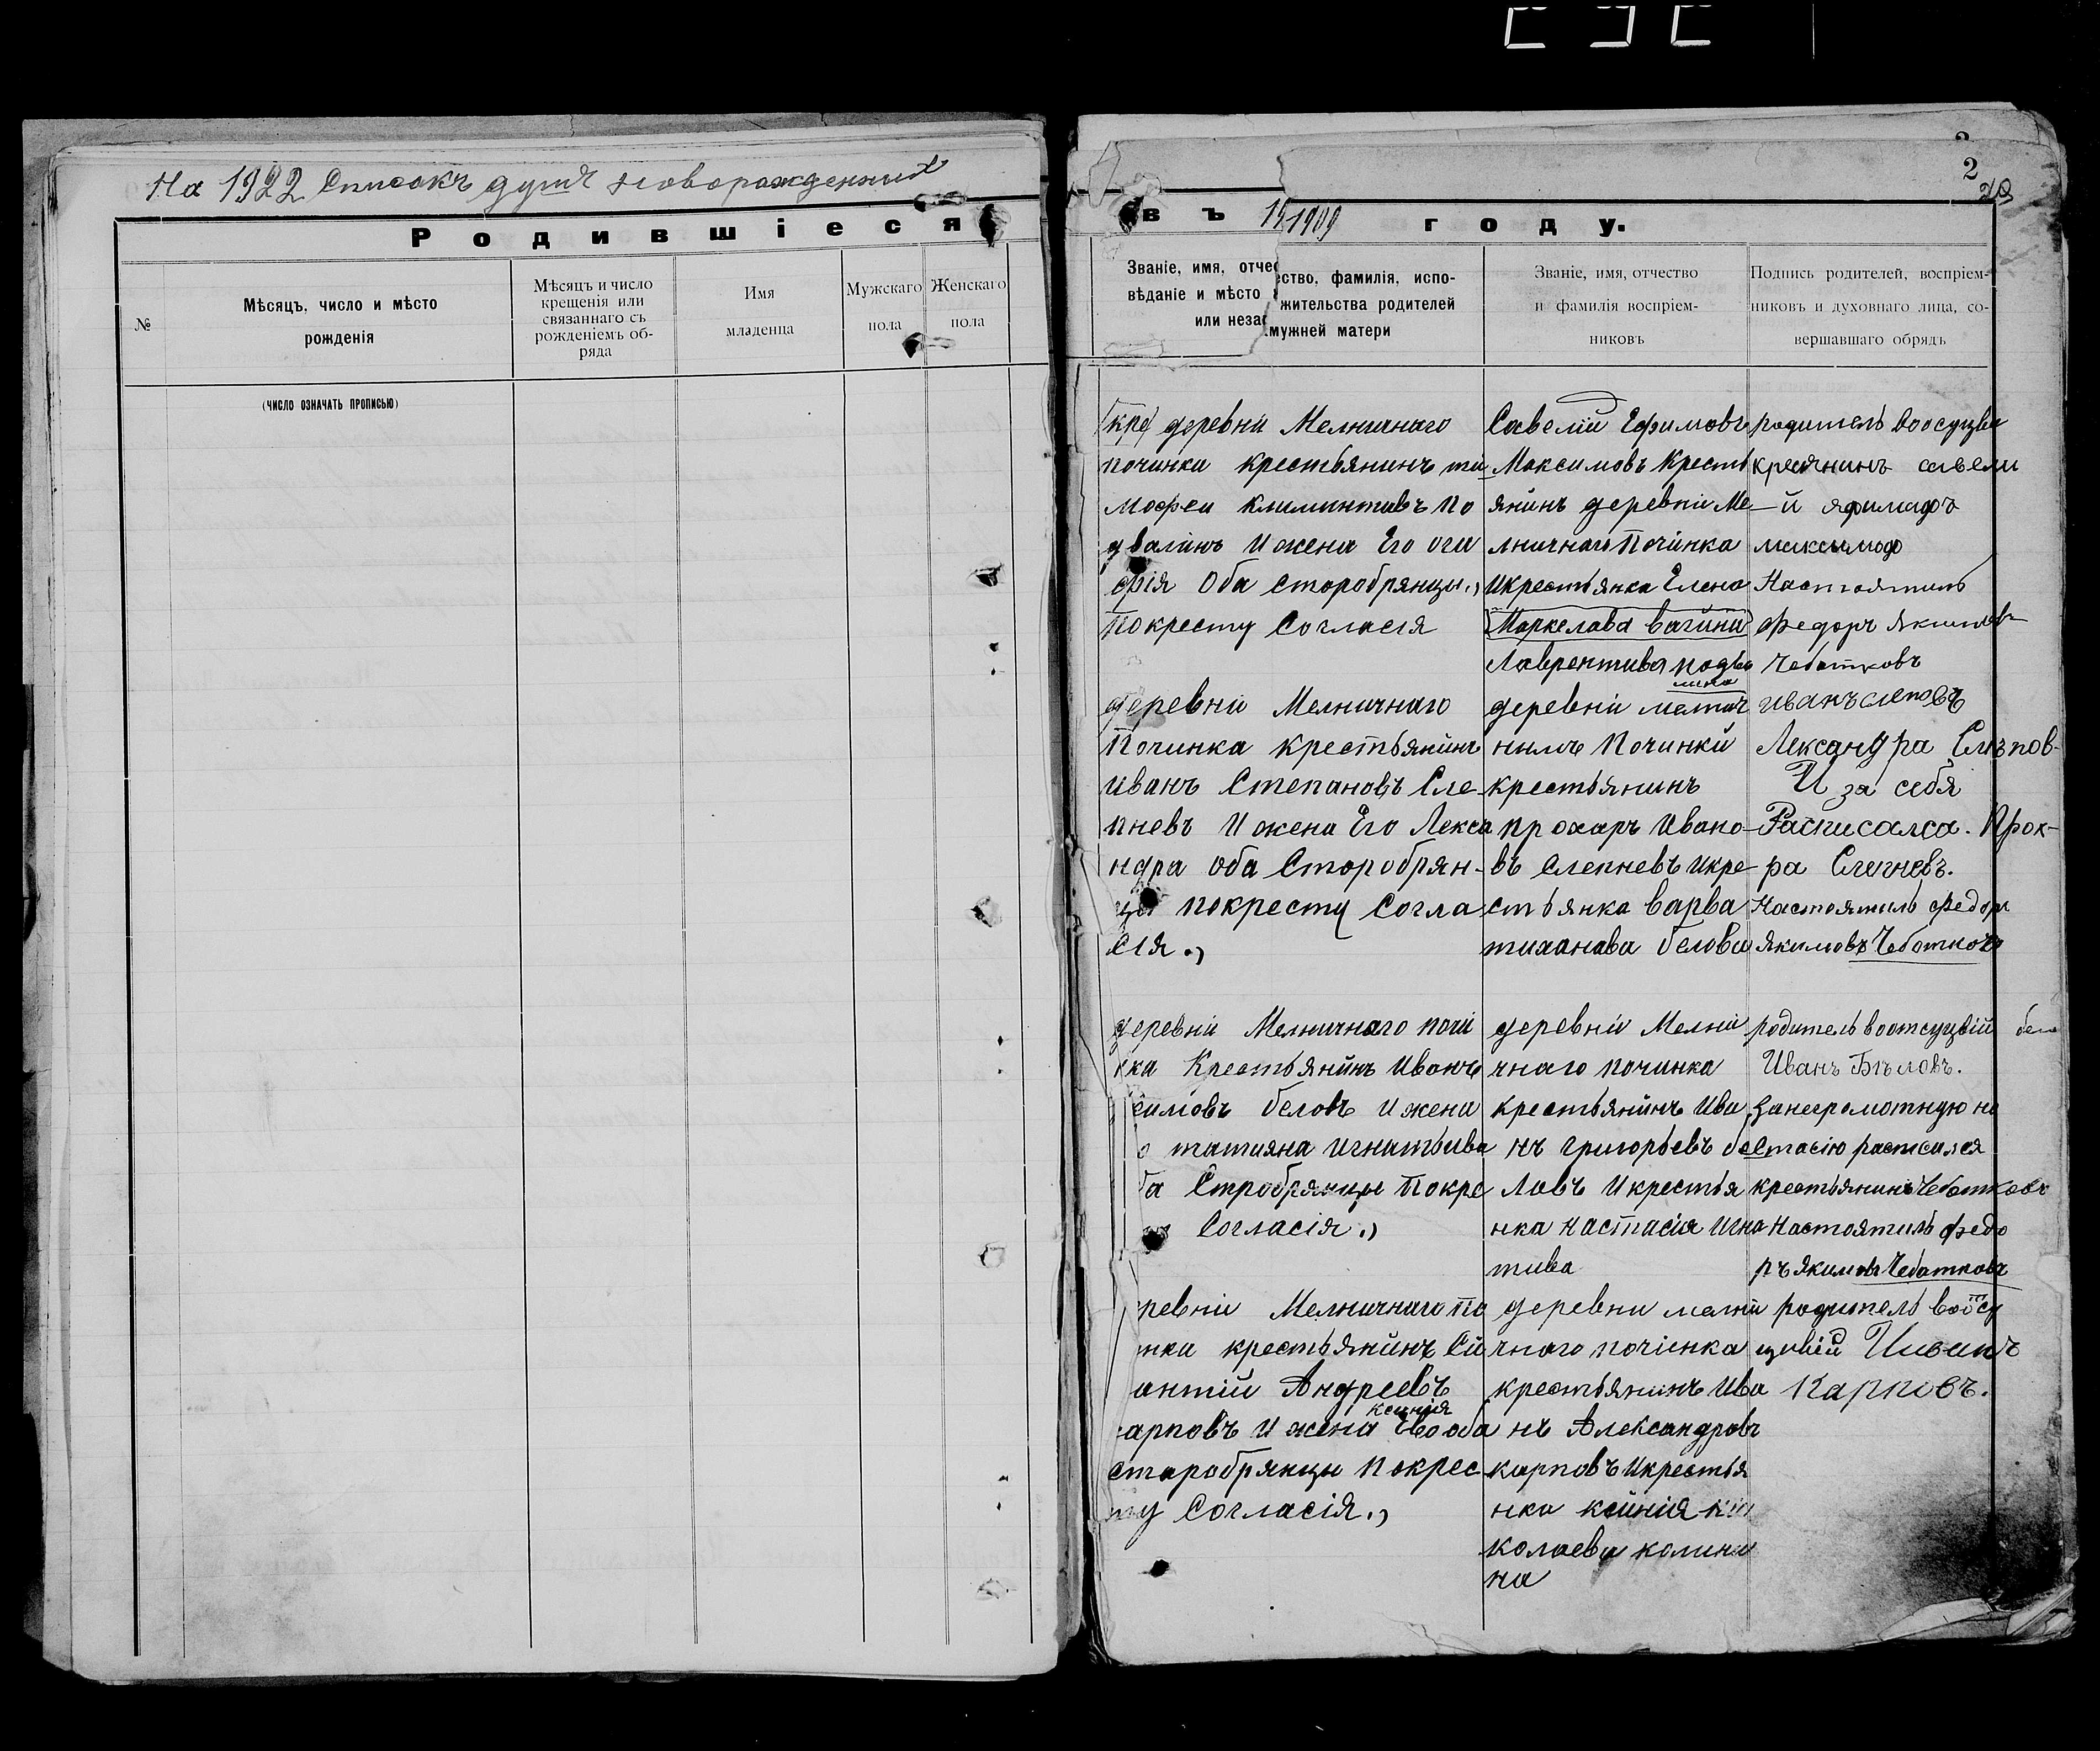 На 1922 Списокъ душъ новорожденных
Родившіеся
№
Мѣсяцъ, число и мѣсто
рожденія
Мѣсяцъ и число
крещенія или
связаннаго съ
рожденіемъ об-
ряда
Имя
младенца
Мужскаго
пола
Женскаго
пола
(число означать прописью)
2
въ 1909 году.
Званіе, имя, отчество, фамилія, испо-
вѣданіе и мѣсто жительства родителей
или незамужней матери
Званіе, имя, отчество
и фамилія воспріем-
никовъ
Подпись родителей, воспріем-
никовъ и духовнаго лица, со-
вершавшаго обрядъ
деревни Мелничнаго
починка крестьянинъ ти
мофеи климинтивъ По
двалинъ И жена Его ога
фія Оба старобрянцы
Покресту Согласія
Савелій Ефимовъ
Максимовъ Кресть
янинъ деревни Ме
лничнаго Починка
Икрестьянка Елена
Маркелава вагина
Лаврентива подва
лина
родитель
савели
й яфимафъ
максимоф
Настоятиль
Федоръ Якимовъ
Чеботковъ
деревни Мелничнаго
Починка крестьянинъ
иванъ Степановъ Сле-
пневъ И жена Его Лекса
ндра оба Сторобрян-
цы покресту Согла
сія
деревни
Починки
крестьянинъ
прохаръ Ивано-
въ Слепневъ Икре
стьянка варва
тиханава белова
иванъ слеповъ
Лександра
И за себя
Расписалса. Прох-
ра
Настоятиль Федоръ
Якимовъ Чеботковъ
деревни Мелничнаго почи
нка Крестьянинъ Иванъ
симовъ беловъ И жена
татияна игнатьива
ба Стробрянцы Покре
Согласія
деревни Мелни
чнаго починка
крестьянинъ Ива
нъ григорьевъ бе
ловъ Икрестья
нка настасія Игна
тива
родитель воотсуцвій
Иванъ Бѣловъ.
занеграмотную на
стасію расписался
крестьянинъ Чеботковъ
Настоятиль Федо
ръ Якимовъ Чеботковъ
ревни Мелничнаго По
нка крестьянинъ Си
антій Андреевъ
ксинія
арповъ И жена Ево оба
старобрянцы покрес-
ту Согласія
деревни мелни
чнаго починка
крестьянинъ Ива
нъ Александровъ
карповъ Икрестья
нка ксинія ни
колаева калини
на
родитель воотсу
цвіи Иванъ
Карповъ.